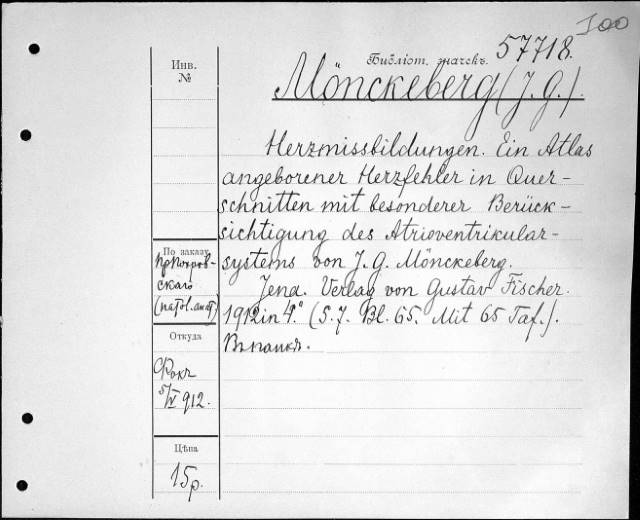 57718.
Инв.
№
Библіот. значекъ.
Mönckeberg (J. G.).
Herzmissbildungen. Ein Atlas
angeborener Herzfehler in Quer-
schnitten mit besonderer Berück-
sichtigung des Atrioventrikular-
systems von J. G. Mönckeberg.
Jena. Verlag von Gustav Fischer.
1912 in 4.° (S. 7. Bl. 65. Mit 65 Taf.).
Въ папкѣ.
По заказу
пр Покров-
скаго
(патол. анат)
Откуда
5/IV 912.
Цѣна
15 р.